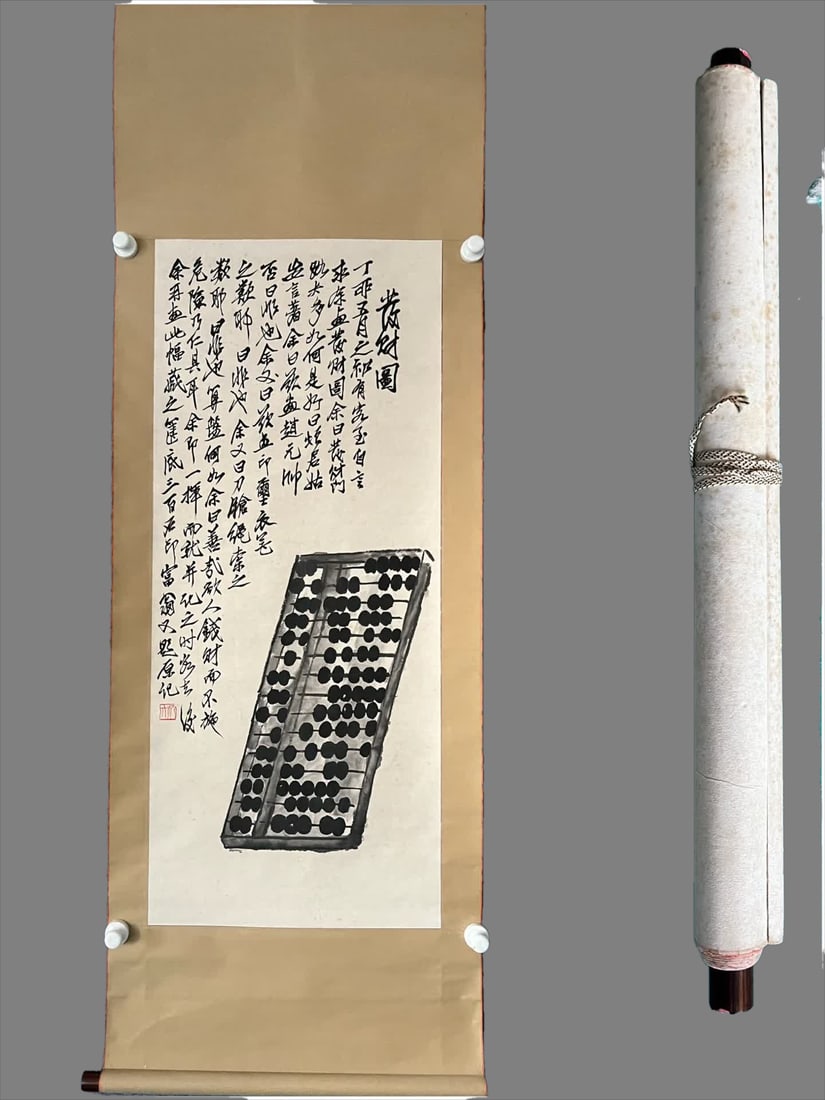 發財圖
丁卯五月之初有客至自言
求余畫發財圖余曰發財門
路太多如何是好曰煩君姑
妄言著余曰欲畫趙元帥
否曰非也余又曰欲畫印璽衣冠
之類耶曰非也余又曰刀槍繩索之
類耶曰非也算盤何如余曰善哉欲人錢財而不施
危險乃仁具耳余即一揮而就并記之時客去後
余再畫此幅藏之篋底三百石印富翁又題原記